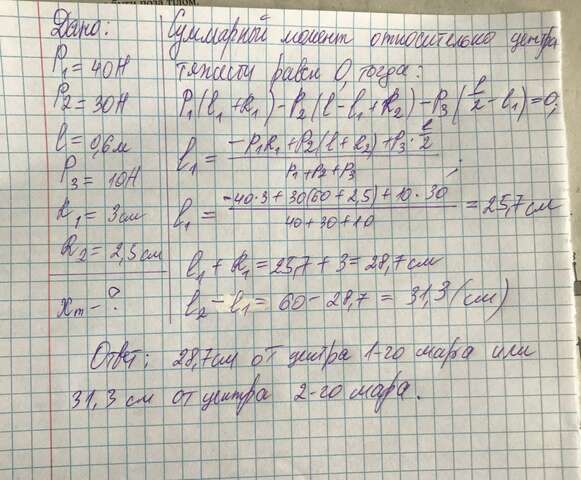 Дано:
P₁ = 40Н
P₂ = 30Н
l = 0,6м
P₃ = 10Н
R₁ = 3см
R₂ = 2,5см
xₘ - ?
Суммарный момент относительно центра
тяжести равен 0, тогда:
P₁(l₁ + R₁) - P₂(l - l₁ + R₂) - P₃(l/2 - l₁) = 0;
l₁ = (-P₁R₁ + P₂(l + R₂) + P₃ · l/2) / (P₁ + P₂ + P₃) ;
l₁ = (-40·3 + 30(60 + 2,5) + 10 · 30) / (40 + 30 + 10) = 25,7 см
l₁ + R₁ = 25,7 + 3 = 28,7 см
l₂ - l₁ = 60 - 28,7 = 31,3 (см)
Ответ: 28,7см от центра 1-го шара или
31,3 см от центра 2-го шара.